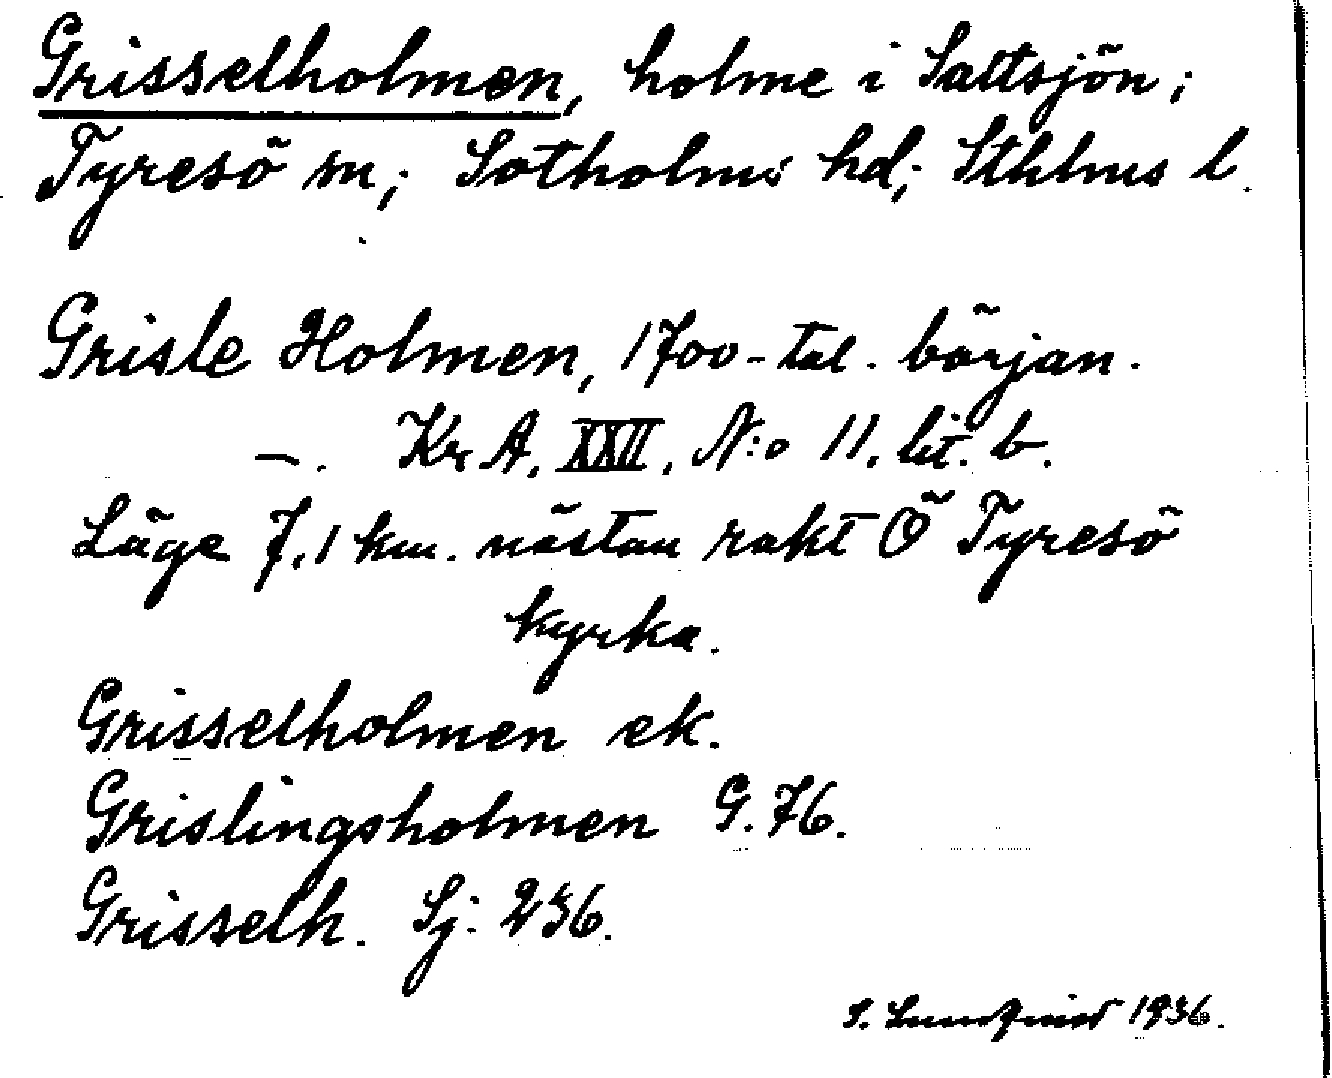 Grisselholmen, holme i Saltsjön;
Tyresö sn; Sotholms hd; Sthlms l.
Grisle Holmen, 1700-tal. början.
—. Kr. A. XXII, N:o 11. lit. b.
Läge 7,1 km. nästan rakt Ö Tyresö
kyrka.
Grisselholmen ek.
Grislingsholmen G.76.
Grisselh. Sj: 236.
S. Lundqvist 1936.